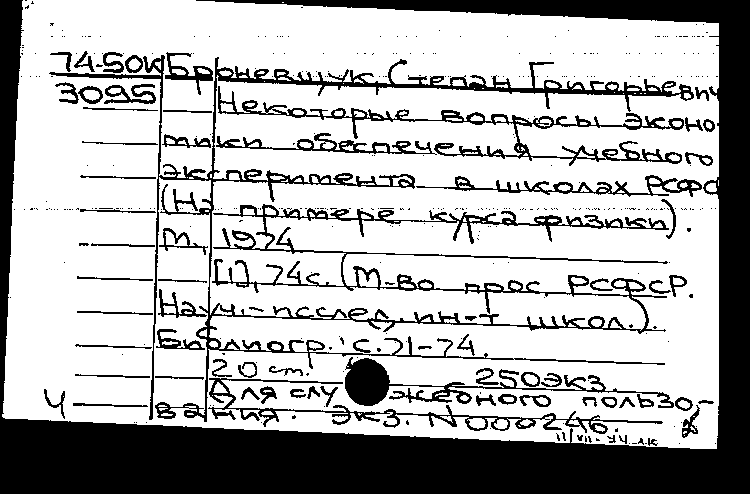 74-50К Броневщук, Степан Григорьевич
3095 Некоторые вопросы эконо-
мики обеспечения учебного
эксперимента в школах РСФС
(На примере курса физики).
М., 1974
[1], 74с. (М-во прос. РСФСР.
Науч.-исслед. ин-т школ.).
Библиогр.: с. 71-74.
20 см. 250экз.
Для служебного пользо-
Ч вания. Экз. N000246.